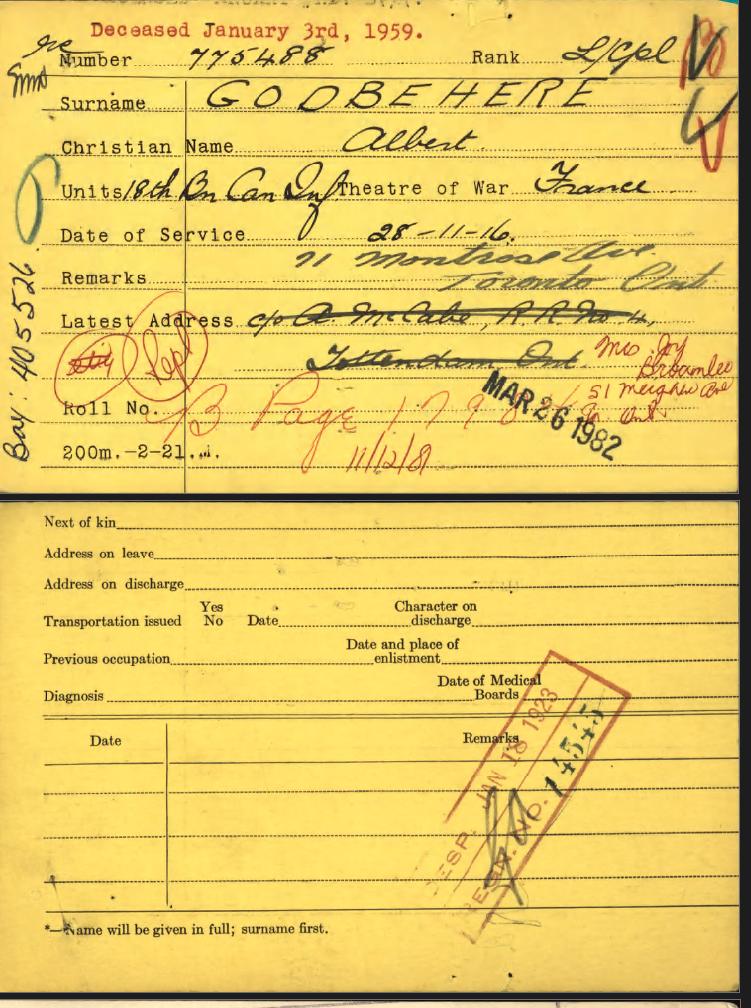 Deceased January 3rd, 1959.
Number 775488 Rank L/Cpl
Surname GODBEHERE
Christian Name Albert
Units 18th Bn Can Inf Theatre of War France
Date of Service 28-11-16.
71 Montrose Ave.
Remarks Toronto Ont.
Latest Address c/o A. McCabe, R.R. No 4,
Tottenham Ont. Mrs Joy
Bromlee
51 Meighen Ave
Ont
Repl
Roll No. B Page 179
MAR 26 1982
200m.-2-21.M. 11/12/81
Bay: 405526
Next of kin
Address on leave
Address on discharge
Transportation issued Yes No Date Character on discharge
Previous occupation Date and place of enlistment
Diagnosis Date of Medical Boards
Date Remarks
ESP. JAN 18 1923
REGN. NO. 14545
*—Name will be given in full; surname first.